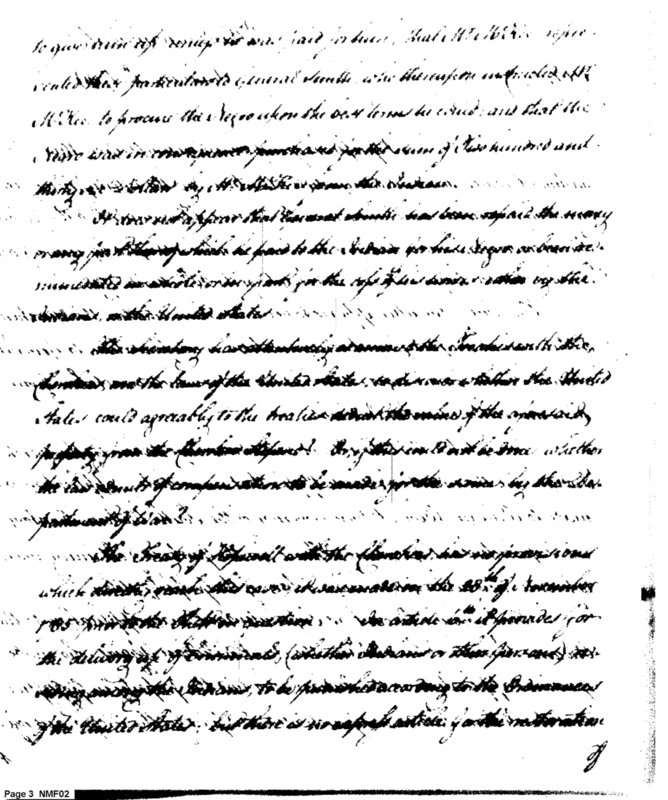 to give him up unless he was paid for him, that Mr McKee repre-
sented these particulars to General Smith, who thereupon instructed Mr
McKee to procure the Negro upon the best terms he could, and that the
Negro was in consequence purchased for the sum of Five hundred and
thirty dollars by Mr McKee from the Indian.
It does not appear that General Smith has been repaid the money
or any part thereof which he paid to the Indian for his Negro, or been re-
munerated in whole or in part, for the loss of his horses either by the
Indians, or the United States
The Secretary has attentively examined the Treaties with the
Cherokees and the laws of the United States, to discover whether the United
States could agreeably to the treaties deduct the value of the aforesaid
property from the Cherokee Stipend? Or if this could not be done whether
the law admits of compensation to be made, for the same by the De-
partment of War?
The Treaty of Hopewell with the Cherokees has no provisions
which directly reach this case; it was made on the 28th of November
1785 prior to the theft in question. In article 6th it provides for
the delivery up of criminals, (whether Indians or other persons) re-
siding among the Indians, to be punished according to the Ordinances
of the United States; but there is no express article for the restoration
of
Page 3 NMF02